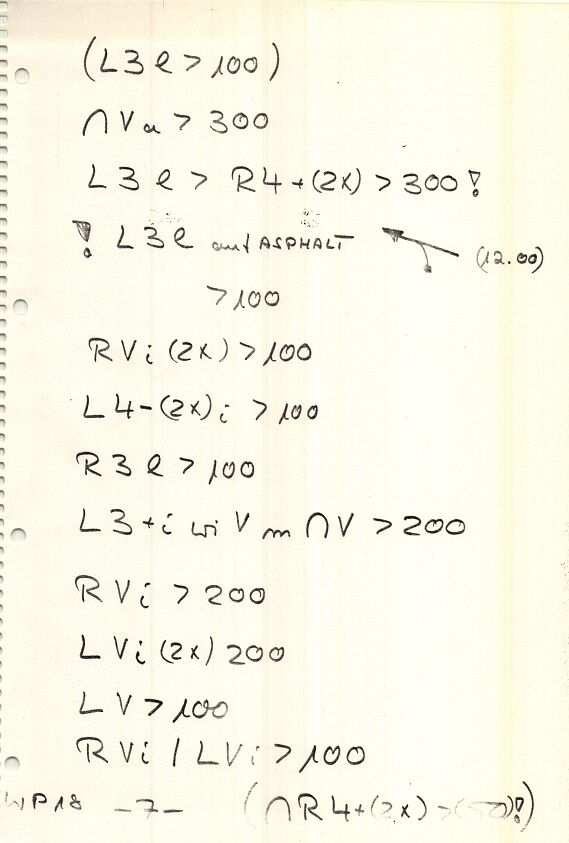 (L3 l > 100)
∩ Va > 300
L3 l > R4+(2x) > 300!
! L3 l auf ASPHALT (12.00)
> 100
RVi (2x) > 100
L4-(2x)i > 100
R3 l > 100
L3+i wi V m ∩V > 200
RVi > 200
LVi (2x) 200
LV > 100
RVi / LVi > 100
WP18 -7- (∩R4+(2x) > (50)!)